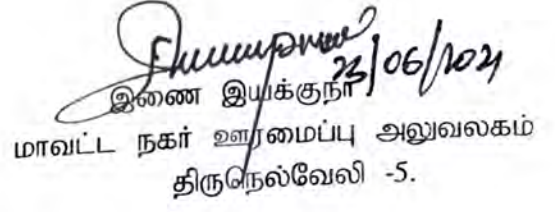 23/06/2021
இணை இயக்குநர்
மாவட்ட நகர் ஊரமைப்பு அலுவலகம்
திருநெல்வேலி -5.